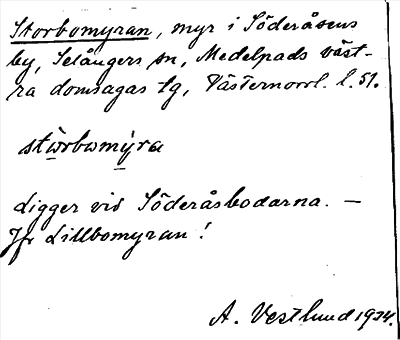 Storbomyran, myr i Söderåsens
by, Selångers sn, Medelpads väst-
ra domsagas tg, Västernorrl. l. 51.
stωrbωmýra
Ligger vid Söderåsbodarna. —
Jfr Lillbomyran!
A. Vestlund 1924.